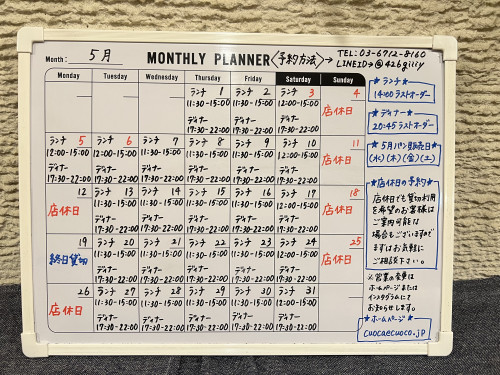 Month: 5月 MONTHLY PLANNER <予約方法>→ TEL:03-6712-8160
LINEID→@426gilly
Monday Tuesday Wednesday Thursday Friday Saturday Sunday
ランチ 1 ランチ 2 ランチ 3 4
11:30-15:00 11:30-15:00 12:00-15:00 店休日
ディナー ディナー ディナー
17:30-22:00 17:30-22:00 17:30-22:00
ランチ 5 ランチ 6 ランチ 7 ランチ 8 ランチ 9 ランチ 10 11
12:00-15:00 12:00-15:00 11:30-15:00 11:30-15:00 11:30-15:00 12:00-15:00 店休日
ディナー ディナー ディナー ディナー ディナー ディナー
17:30-22:00 17:30-22:00 17:30-22:00 17:30-22:00 17:30-22:00 17:30-22:00
12 ランチ 13 ランチ 14 ランチ 15 ランチ 16 ランチ 17 18
店休日 11:30-15:00 11:30-15:00 11:30-15:00 11:30-15:00 12:00-15:00 店休日
ディナー ディナー ディナー ディナー ディナー
17:30-22:00 17:30-22:00 17:30-22:00 17:30-22:00 17:30-22:00
19 ランチ 20 ランチ 21 ランチ 22 ランチ 23 ランチ 24 25
終日貸切 11:30-15:00 11:30-15:00 11:30-15:00 11:30-15:00 12:00-15:00 店休日
ディナー ディナー ディナー ディナー ディナー
17:30-22:00 17:30-22:00 17:30-22:00 17:30-22:00 17:30-22:00
26 ランチ 27 ランチ 28 ランチ 29 ランチ 30 ランチ 31
店休日 11:30-15:00 11:30-15:00 11:30-15:00 11:30-15:00 12:00-15:00
ディナー ディナー ディナー ディナー ディナー
17:30-22:00 17:30-22:00 17:30-22:00 17:30-22:00 17:30-22:00
★ランチ★
14:00ラストオーダー
★ディナー★
20:45ラストオーダー
★5月パン販売日★
(火)(木)(金)(土)
★店休日の予約★
店休日でも貸切利用
を希望のお客様は
ご案内可能な
場合もございますので
まずはお気軽に
ご相談下さい。
※営業の変更は
ホームページまたは
インスタグラムにて
お知らせします。
★ホームページ★
cuocaecuoco.jp